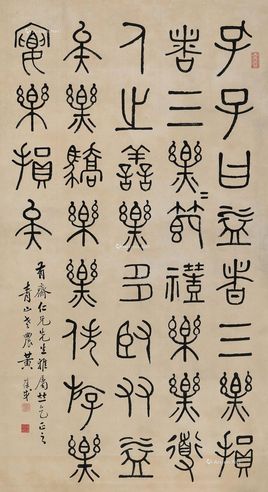 孔子曰益者三樂損
者三樂〻節禮樂導
人之善樂多臤友益
矣樂驕樂樂佚游樂
宴樂損矣
齋仁兄先生雅屬並乞正之
青山老農黃葆戉